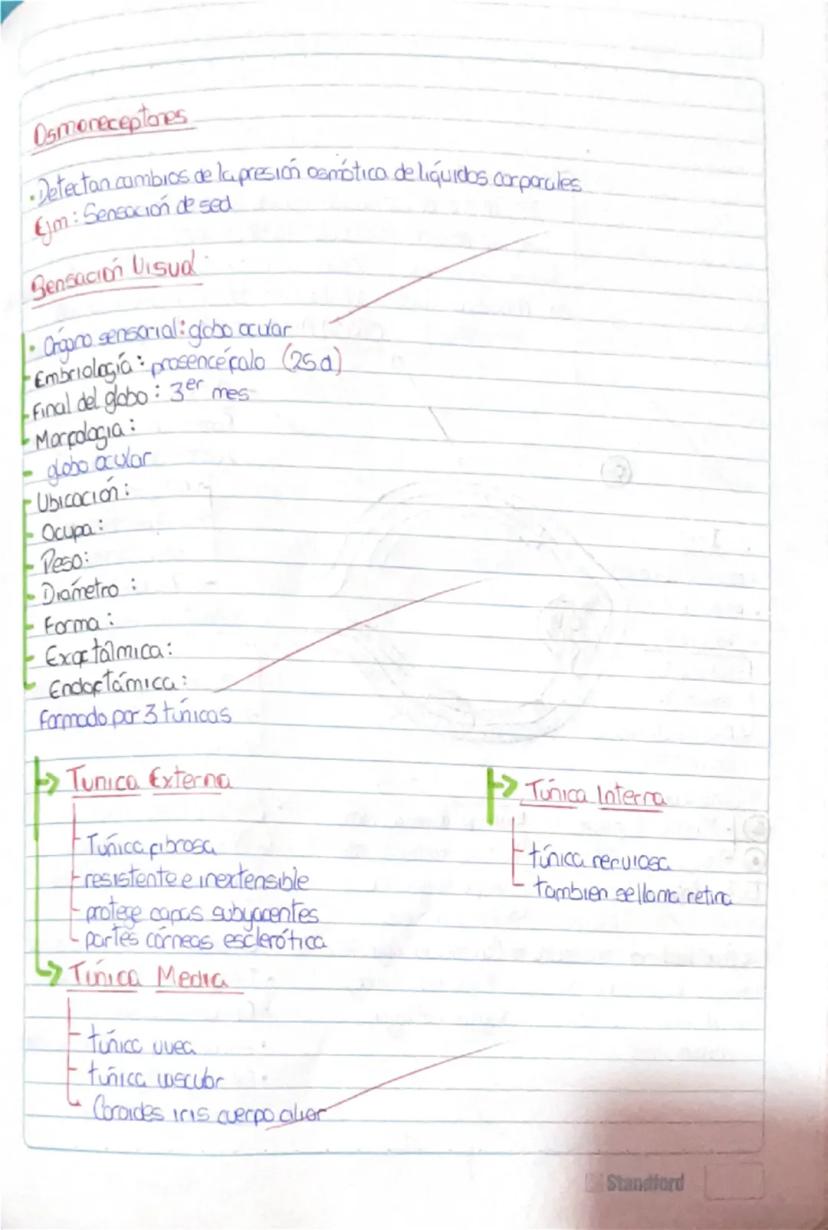 Osmoreceptores
• Detectan cambios de la presión osmótica de líquidos corporales
Ejm: Sensación de sed
Sensación Visual
• Órgano sensorial: globo ocular
- Embriología: prosencéfalo (25 d)
- Final del globo: 3er mes
- Morfología:
- globo ocular
- Ubicación:
- Ocupa:
- Peso:
- Diámetro:
- Forma:
- Exoftálmica:
- Endoftámica:
Formado por 3 túnicas
→ Tunica Externa
- Túnica fibrosa
- resistente e inextensible
- protege capas subyacentes
- partes córneas esclerótica
→ Túnica Media
- túnica uvea
- túnica vascular
- Coroides iris cuerpo ciliar
→ Túnica Interna
- túnica nerviosa
- tambien se llama retina
Standford